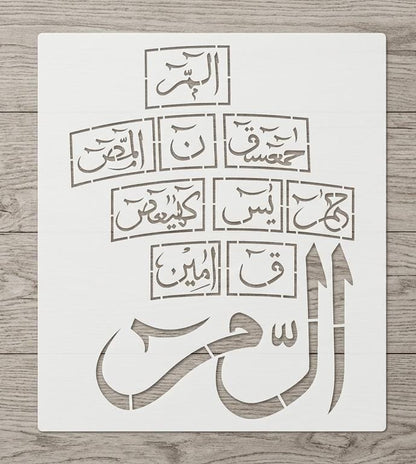 المّر
حمعسق ن المّص
حم يس كهيعص
ق امِيْن
الّمر